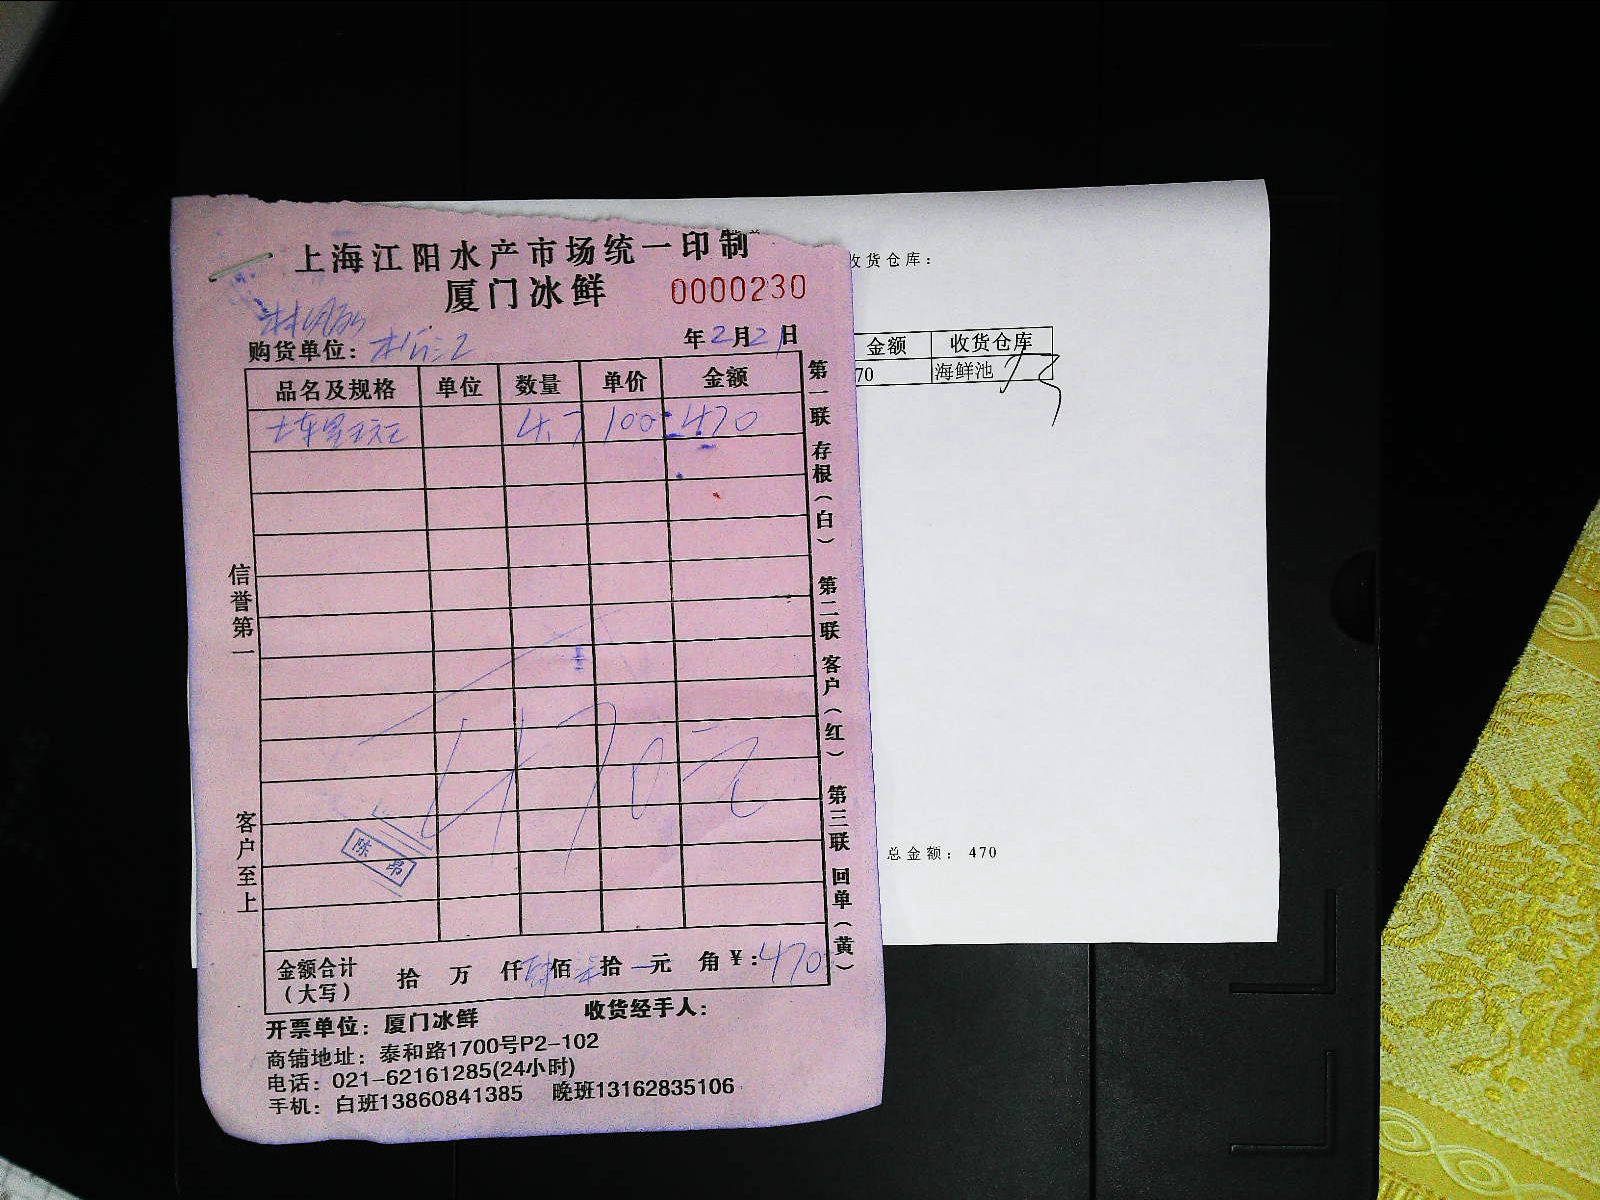 上海江阳水产市场统一印制
厦门冰鲜 0000230
购货单位：
年2月21日
品名及规格 单位 数量 单价 金额
4.7 100 470
第一联 存根（白） 第二联 客户（红） 第三联 回单（黄）
信誉第一
客户至上
470元
陈昂
金额合计（大写） 拾 万 仟肆佰柒拾一元 角¥：470
开票单位：厦门冰鲜 收货经手人：
商铺地址：泰和路1700号P2-102
电话：021-62161285(24小时)
手机：白班13860841385 晚班13162835106
收货仓库：
金额 收货仓库
70 海鲜池
总金额：470